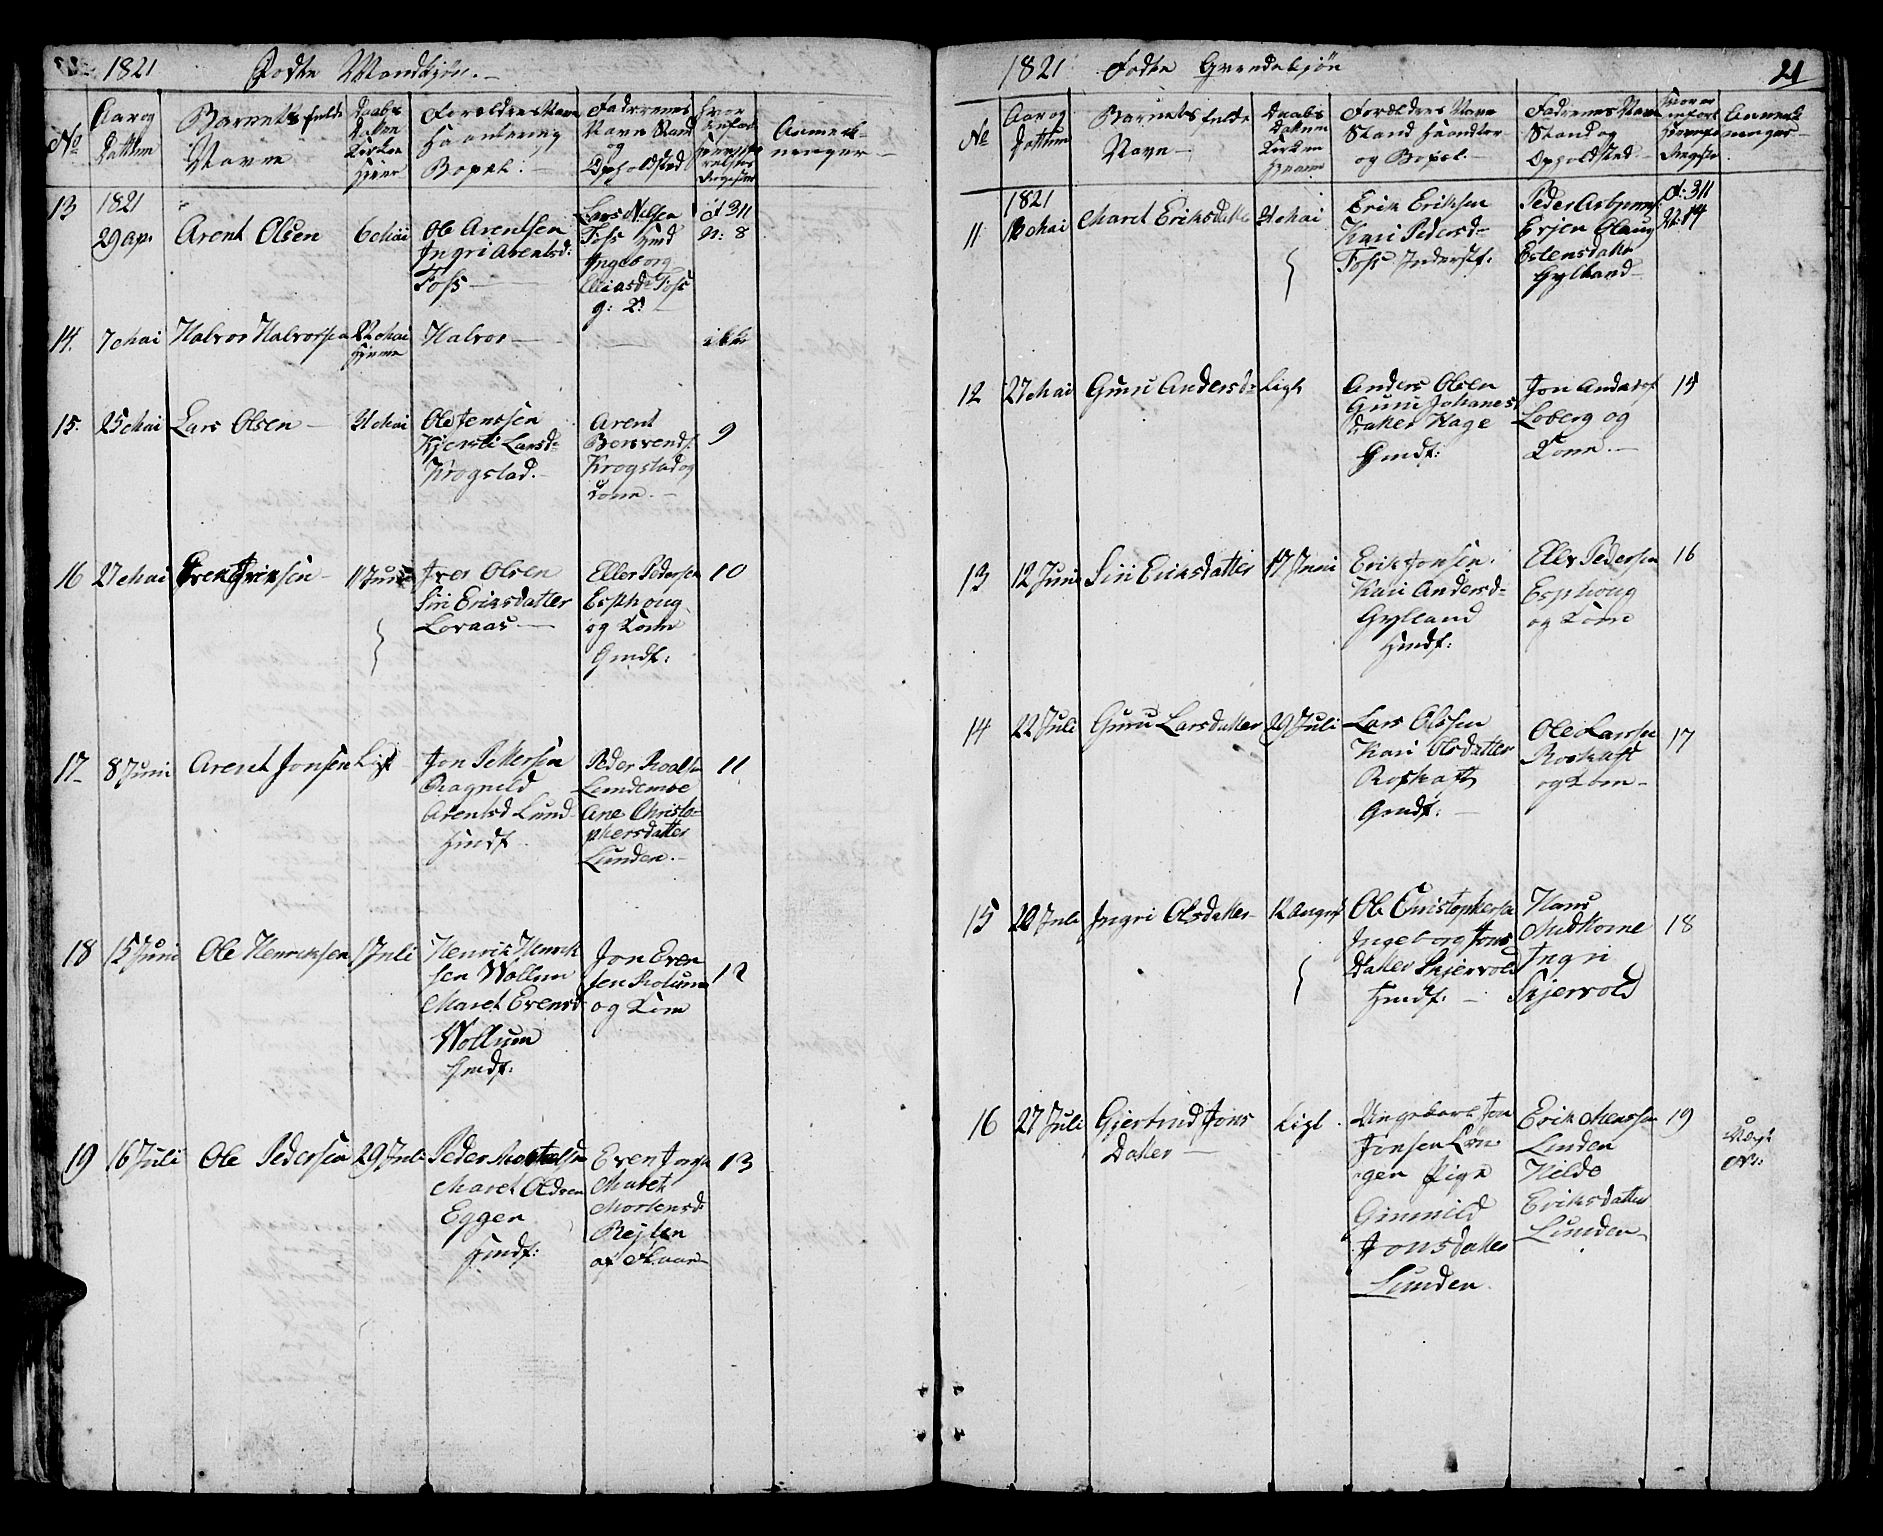 1821 Fødte Mandkjøn. -
No
Aar og
Dattum
Barnets fulde
Navne
Daabs
Datum
Kirken
Hieme
Forældres Navn
Haantering
Bopæl. -
Faddernes
Navn Stand
og
Opholdsted
Hvor
Anmerk-
ninger -
13
1821
29 ap.
Arent Olsen
6 Maii
Ole Arentsen
Ingri Arentsd:
Foss -
Lars Nilsen
Foss Hmd
Ingeborg
Eliasd: Foss
g: D:
A 311
N: 8
14.
7 Mai
Halvor Halvorsen
22 Mai
Hieme
Halvor -
ikke
15.
25 Mai
Lars Olsen -
31 Mai
Ole Jenssen
Kjersti Larsd-
Krogstad. -
Arent
Krogstad og
Kone. -
9
16
27 Mai
Iversen -
11 Juni
Iver Olsen
Siri Eriksdatter
Loraas -
Eller Pedersen
Esphoug
og Kone
Gmdf:
10
17-
8 Juni
Arent Jonsen
Ligt
Jon Pettersen
Ragnild
Arentsd Lund
Hmdf.
Peder
Lundemoe
Ane Christo-
phersdatter
Lunden. -
11
18
15 Juni
Ole Henriksen
1 Juli
Henrik Henrik
sen Wollum
Maret Evensd
Wollum
Hmdf:
Jon Even
sen Rolum
og Kone
12
19
16 Juli
Ole Pedersen
29 Juli
Peder
Maret Olds
Eggen
Hmdf:
Even
Maret
Mortensd
13
1821 Fødte Qvindekjøn
21
No
Aar og
Dattum
Barnets fulde
Navn -
Daabs
Datum
Kirken
Hjemme
Forældres Navn
Stand Haandter
og Bopæl. -
Fadernes Navn
Stand og
Opholdsted -
Hvor er
indført
Anmerk
ninger -
11
1821
Mai
Maret Eriksdatter
31 Mai
Erik Eriksen
Kari Pedersd-
Foss Inderstf:
Peder Asbjørns
Estensdatter
Gylland
A: 311
N: 14
12
27 Mai
Guru Andersd-
Ligt
Anders Olsen
Guru Johanes
datter Hage
Gmdf:
Jon Andersf
Loberg og
Kone. -
15
13
12 Juni
Siri Eriksdatter
17 Juni
Erik Jonsen.
Kari Andersd-
Gylland
Hmdf:
Eller Pedersen
Esphoug
og Kone
16
14
22 Juli
Guru Larsdatter
29 Juli
Lars Olssen
Kari Olsdatter
Roskaft
Gmdf: -
Ole Larssen
Roskaft
og Kone -
17
15
22 Juli
Ingri Olsdatter
12 August
Ole Christophersen
Ingeborg Jons
datter Skjervold
Hmdf: -
Hans
Ingri
Skjervold
18
16
27 Juli
Gjertrud Jons
Datter -
Ligt.
Ungekarl Jon
Jonsen Løn
gen Pige
Gunnild
Jonsdatter
Lunden.
Erik Monssen
Lunden
Kildo
Eriksdatter
Lunden
19